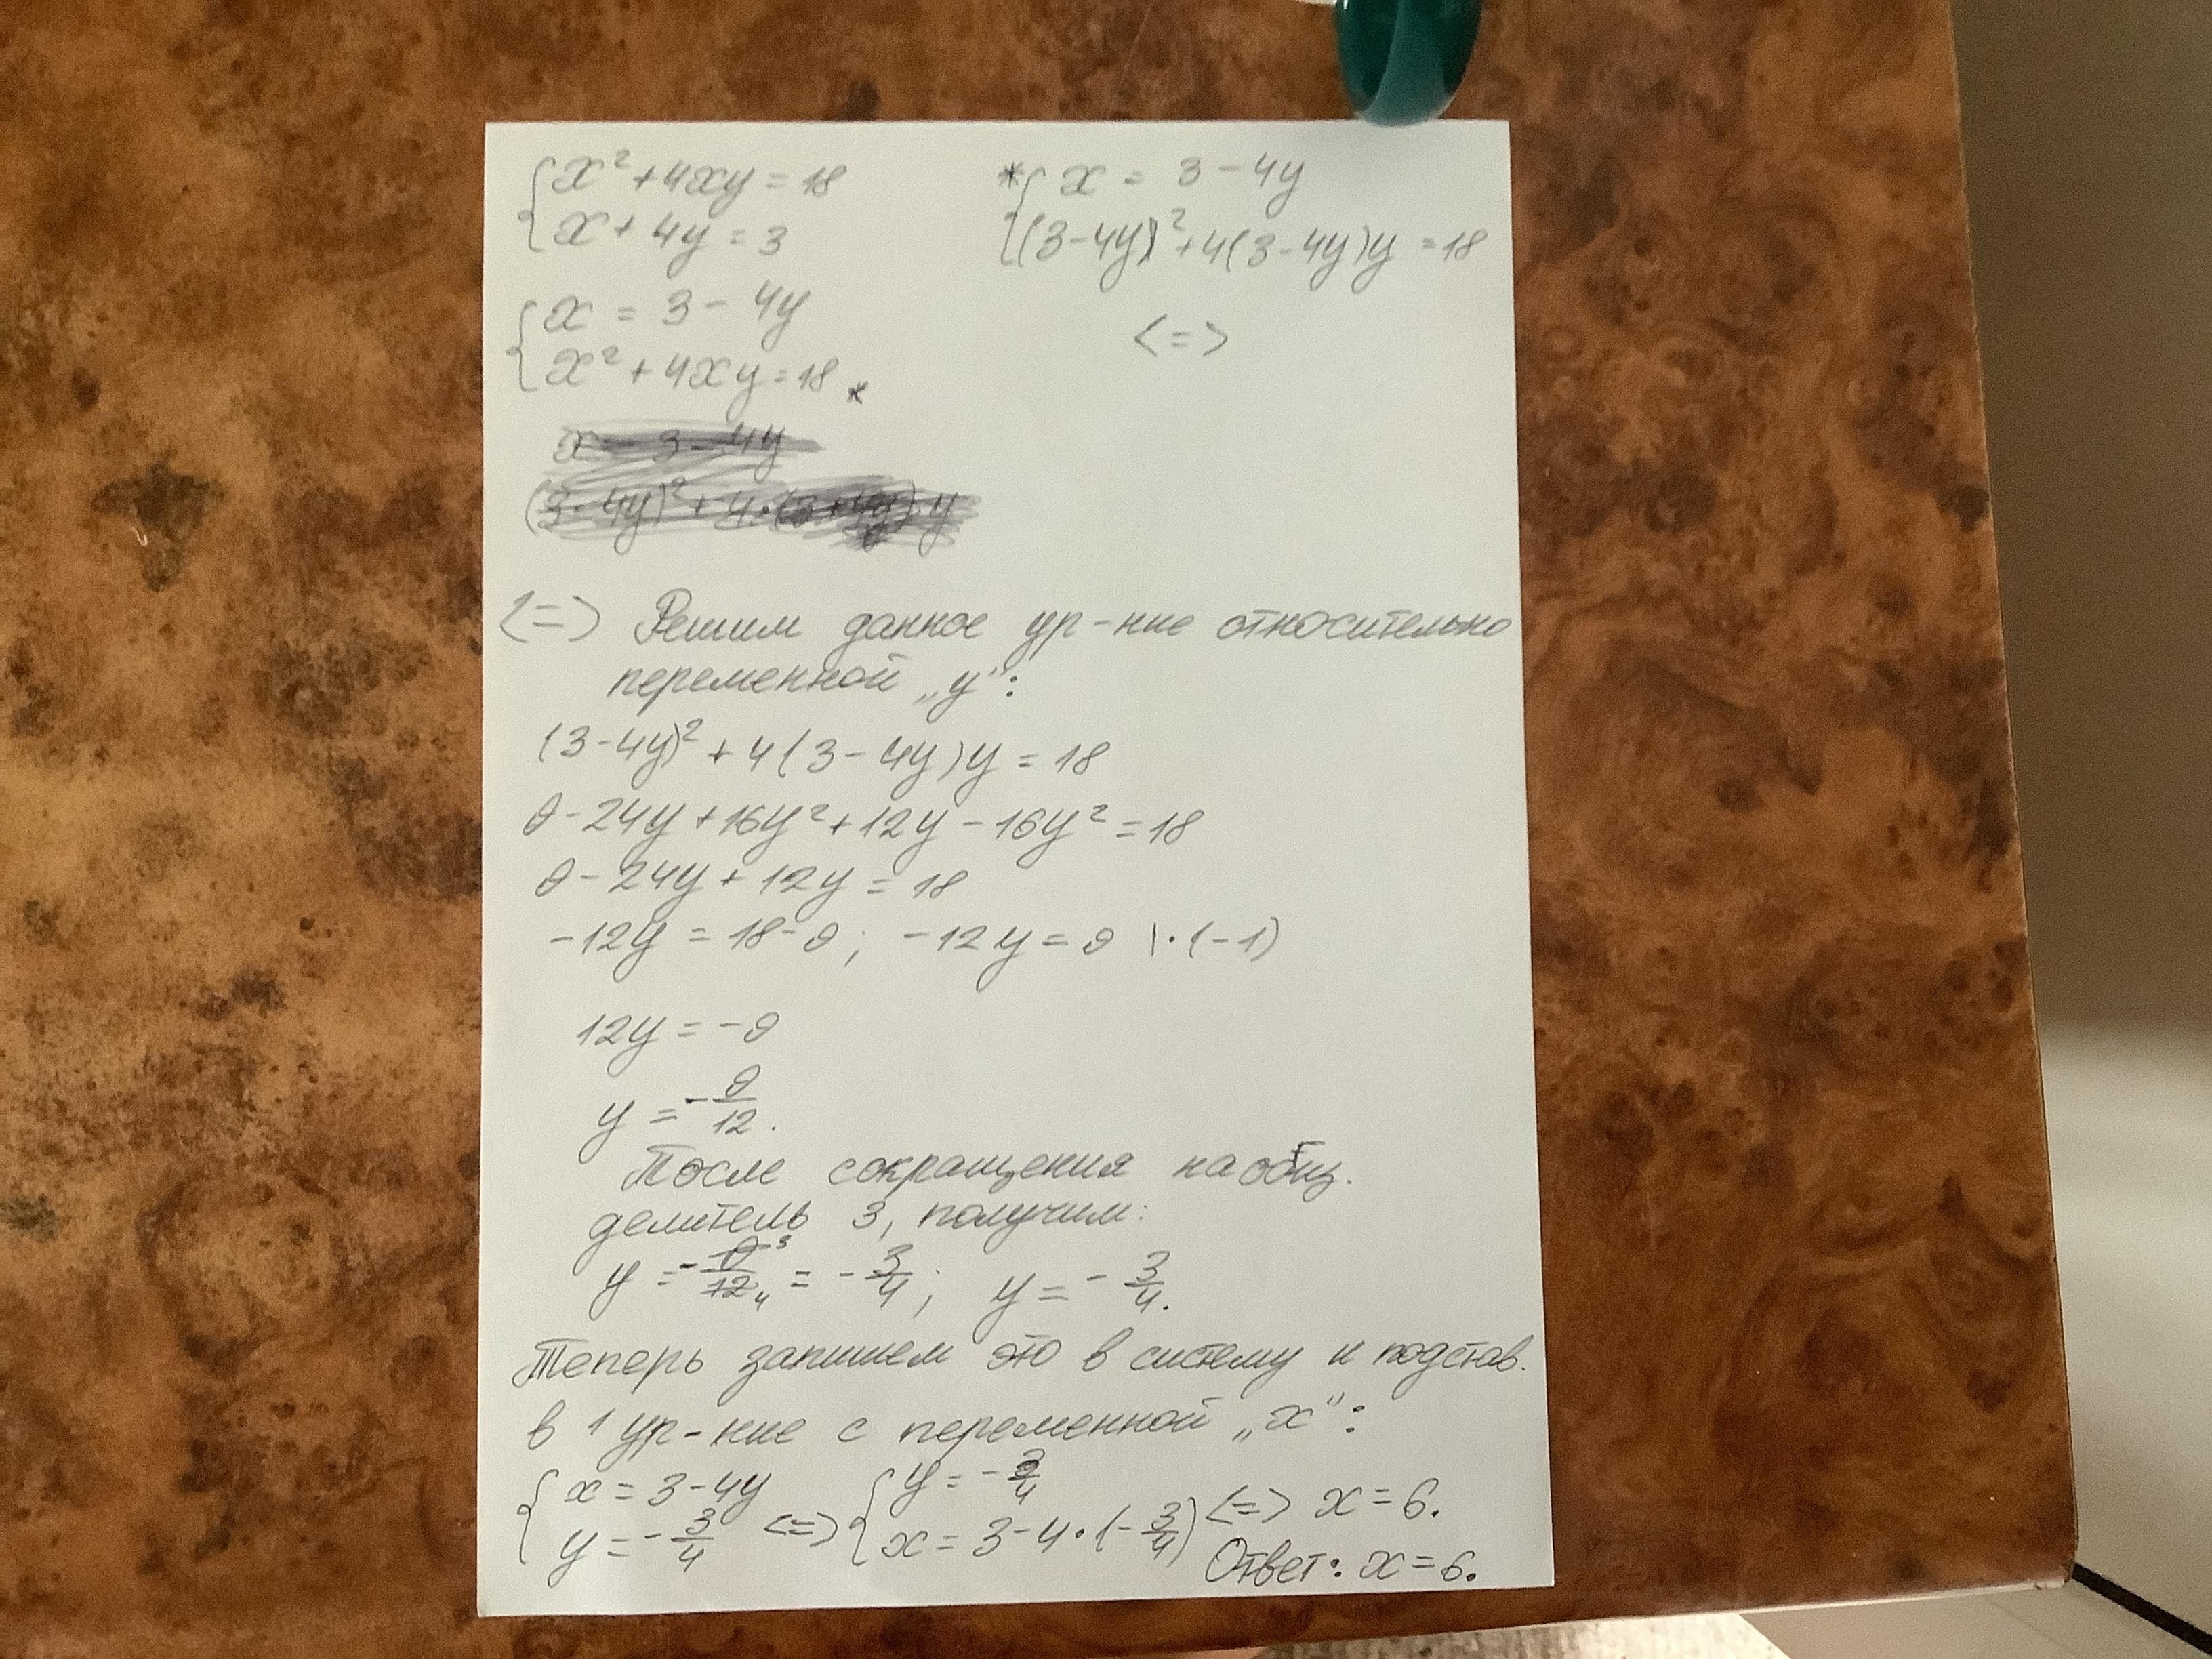 {x² + 4xy = 18
x + 4y = 3
{x = 3 - 4y
x² + 4xy = 18 *
x = 3 - 4y
(3 - 4y)² + 4 · (3 + 4y) y
* {x = 3 - 4y
(3 - 4y)² + 4(3 - 4y)y = 18
<=>
<=> Решим данное ур-ние относительно
переменной „y":
(3 - 4y)² + 4(3 - 4y)y = 18
9 - 24y + 16y² + 12y - 16y² = 18
9 - 24y + 12y = 18
-12y = 18 - 9; -12y = 9 | · (-1)
12y = -9
y = -9/12.
После сокращения на общ.
делитель 3, получим:
y = -9³/12₄ = -3/4; y = -3/4.
Теперь запишем это в систему и подстав.
в 1 ур-ние с переменной „x":
{x = 3 - 4y <=> {y = -3/4 <=> x = 6.
y = -3/4 x = 3 - 4 · (-3/4)
Ответ: x = 6.